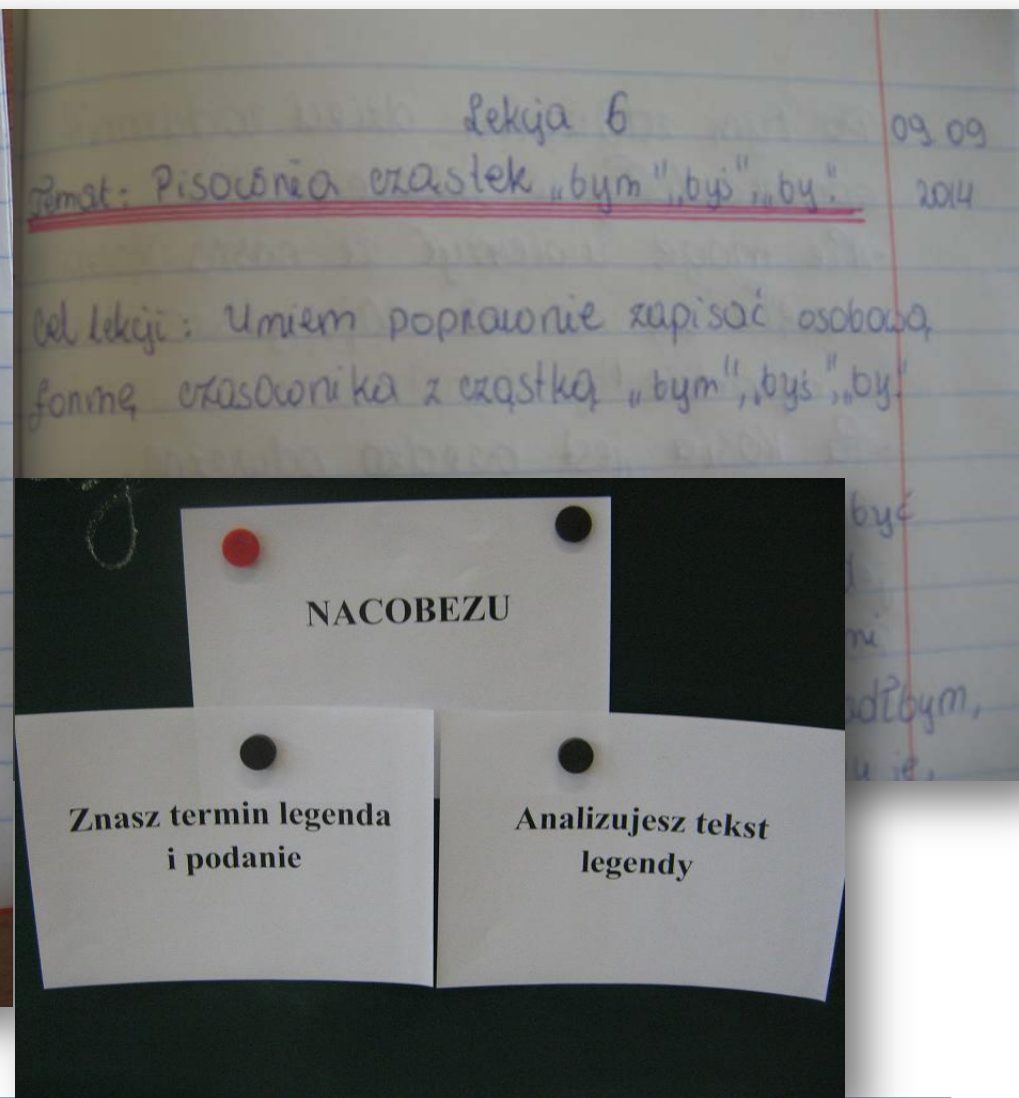 Lekcja 6
09.09
Temat: Pisownia cząstek „bym", „byś", „by".
2014
Cel lekcji: Umiem poprawnie zapisać osobową
formę czasownika z cząstką „bym", „byś", „by"
być
NACOBEZU
Znasz termin legenda
i podanie
Analizujesz tekst
legendy